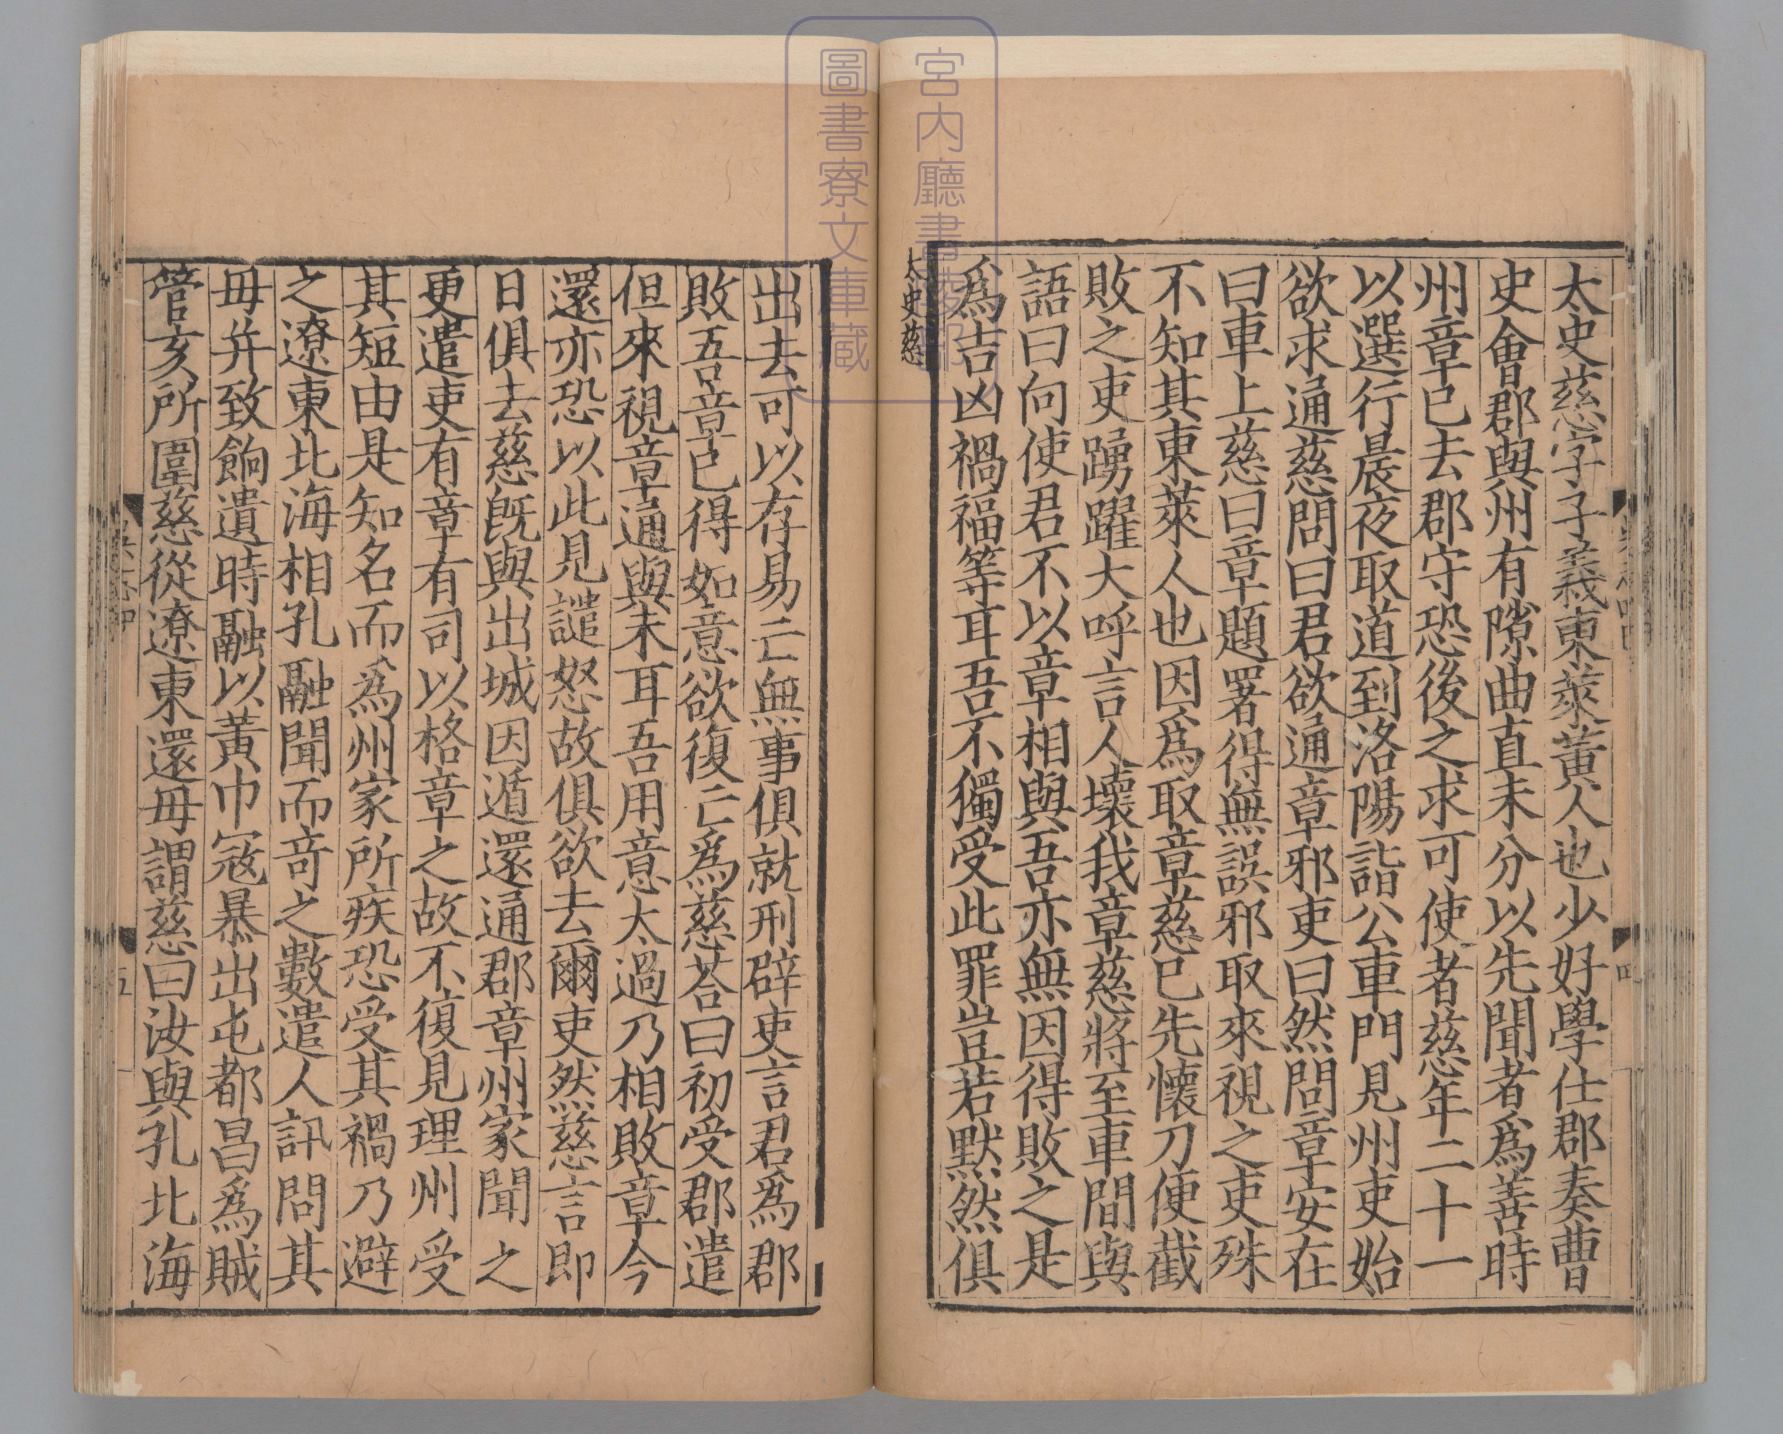 太史慈字子義東萊黃人也少好學仕郡奏曹
史會郡與州有隙曲直未分以先聞者爲善時
州章已去郡守恐後之求可使者慈年二十一
以選行晨夜取道到洛陽詣公車門見州吏始
欲求通慈問曰君欲通章邪吏曰然問章安在
曰車上慈曰章題署得無誤邪取來視之吏殊
不知其東萊人也因爲取章慈已先懷刀便截
敗之吏踴躍大呼言人壞我章慈將至車間與
語曰向使君不以章相與吾亦無因得敗之是
爲吉凶禍福等耳吾不獨受此罪豈若默然俱
太史慈
出去可以存易亡無事俱就刑辟吏言君爲郡
敗吾章已得如意欲復亡爲慈荅曰初受郡遣
但來視章通與未耳吾用意太過乃相敗章今
還亦恐以此見譴怒故俱欲去爾吏然慈言即
日俱去慈旣與出城因遁還通郡章州家聞之
更遣吏有章有司以格章之故不復見理州受
其短由是知名而爲州家所疾恐受其禍乃避
之遼東北海相孔融聞而竒之數遣人訊問其
毋并致餉遺時融以黃巾冦暴出屯都昌爲賊
管亥所圍慈從遼東還毋謂慈曰汝與孔北海
宮内廳書陵部
圖書寮文庫藏